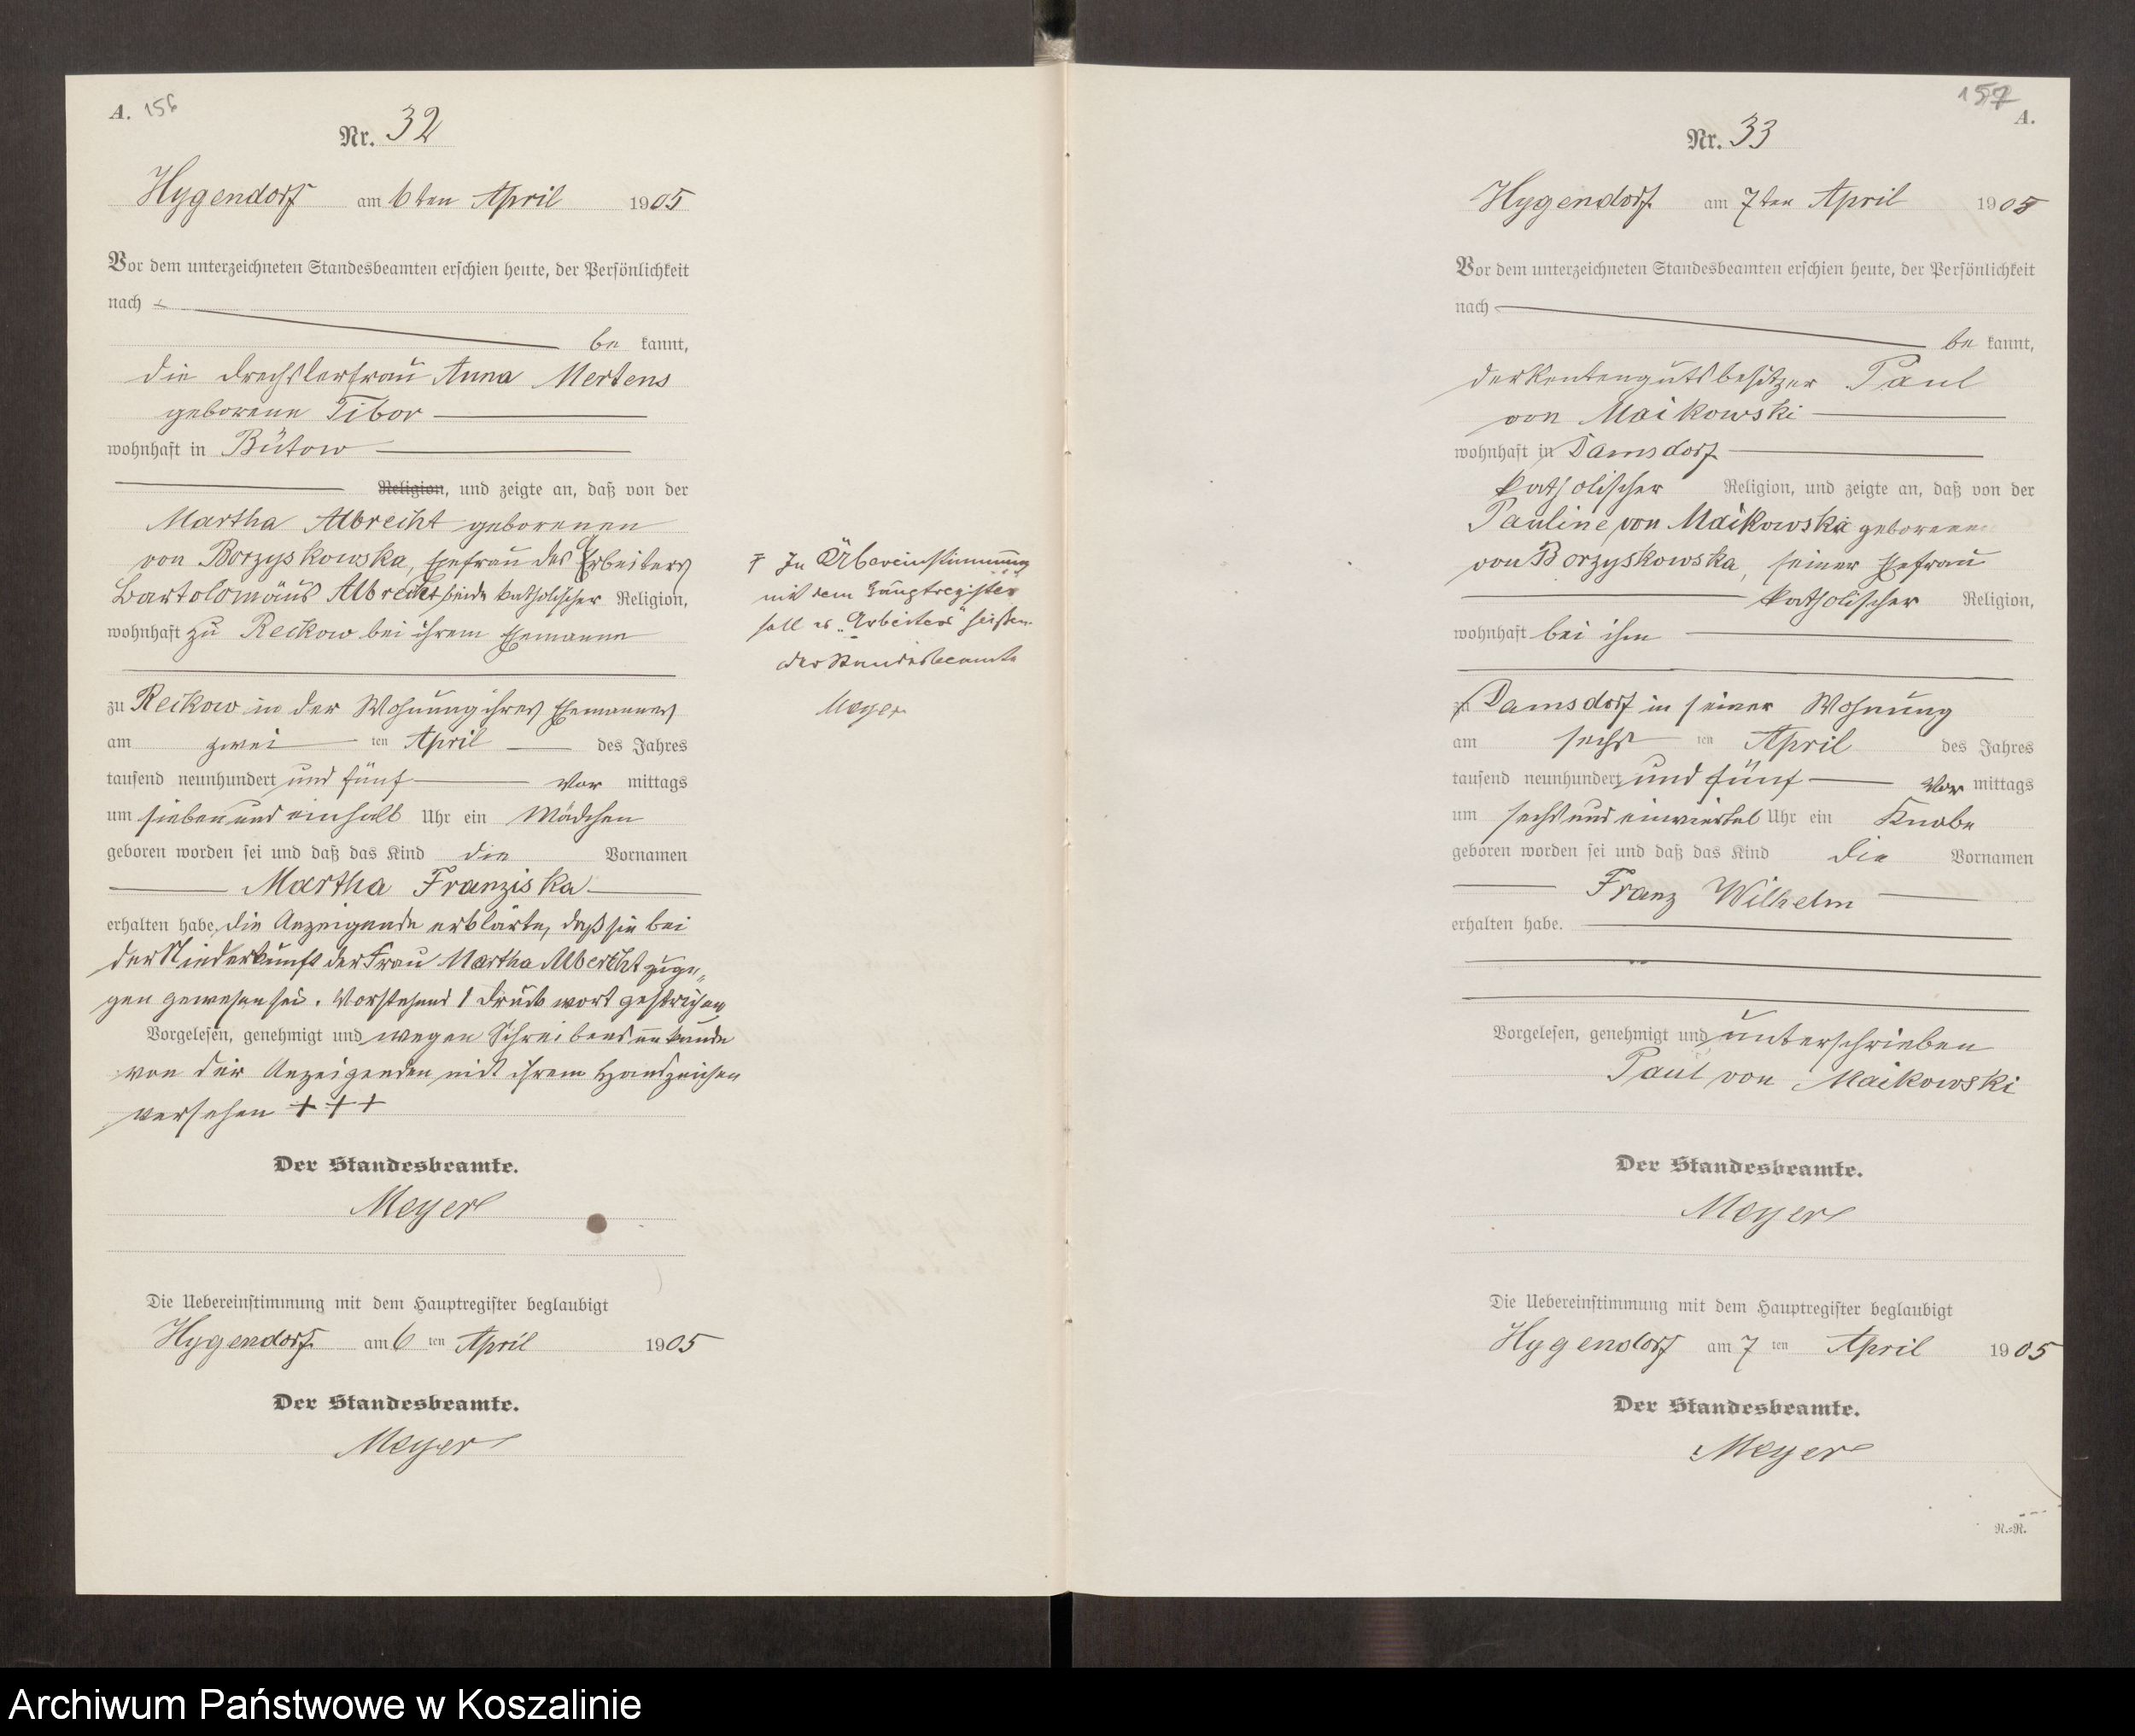 A. 156
Nr. 32
Hygendorf am 6ten April 1905
Vor dem unterzeichneten Standesbeamten erschien heute, der Persönlichkeit
nach
be kannt,
die Drechslerfrau Anna Mertens
geborene Tibor
wohnhaft in Bütow
Religion, und zeigte an, daß von der
Martha Albrecht geborenen
von Borzyskowska, Ehefrau des Arbeiters
Bartolomäus Albrecht beide katholischer Religion,
wohnhaft zu Reckow bei ihrem Ehemanne
zu Reckow in der Wohnung ihres Ehemannes
am zwei ten April des Jahres
tausend neunhundert und fünf Vor mittags
um sieben und einhalb Uhr ein Mädchen
geboren worden sei und daß das Kind die Vornamen
Martha Franziska
erhalten habe, die Anzeigende erklärte, daß sie bei
der Niederkunft der Frau Martha Albrecht zuge„
gen gewesen sei. Vorstehend 1 Druckwort gestrichen
Vorgelesen, genehmigt und wegen Schreibensunkunde
von der Anzeigenden mit ihrem Handzeichen
versehen + + +
Der Standesbeamte.
Meyer
Die Uebereinstimmung mit dem Hauptregister beglaubigt
Hygendorf am 6 ten April 1905
Der Standesbeamte.
Meyer
In Übereinstimmung
mit dem Hauptregister
soll es „Arbeiters" heißen.
Der Standesbeamte
Meyer
157
A.
Nr. 33
Hygendorf am 7ten April 1905
Vor dem unterzeichneten Standesbeamten erschien heute, der Persönlichkeit
nach
be kannt,
der Rentengutsbesitzer Paul
von Maikowski
wohnhaft in Damsdorf
katholischer Religion, und zeigte an, daß von der
Pauline von Maikowska geborenen
von Borzyskowska, seiner Ehefrau
katholischer Religion,
wohnhaft bei ihm
zu Damsdorf in seiner Wohnung
am sechs ten April des Jahres
tausend neunhundert und fünf Vor mittags
um sechs und einviertel Uhr ein Knabe
geboren worden sei und daß das Kind die Vornamen
Franz Wilhelm
erhalten habe.
Vorgelesen, genehmigt und unterschrieben
Paul von Maikowski
Der Standesbeamte.
Meyer
Die Uebereinstimmung mit dem Hauptregister beglaubigt
Hygendorf am 7 ten April 1905
Der Standesbeamte.
Meyer
N.=R.
Archiwum Państwowe w Koszalinie